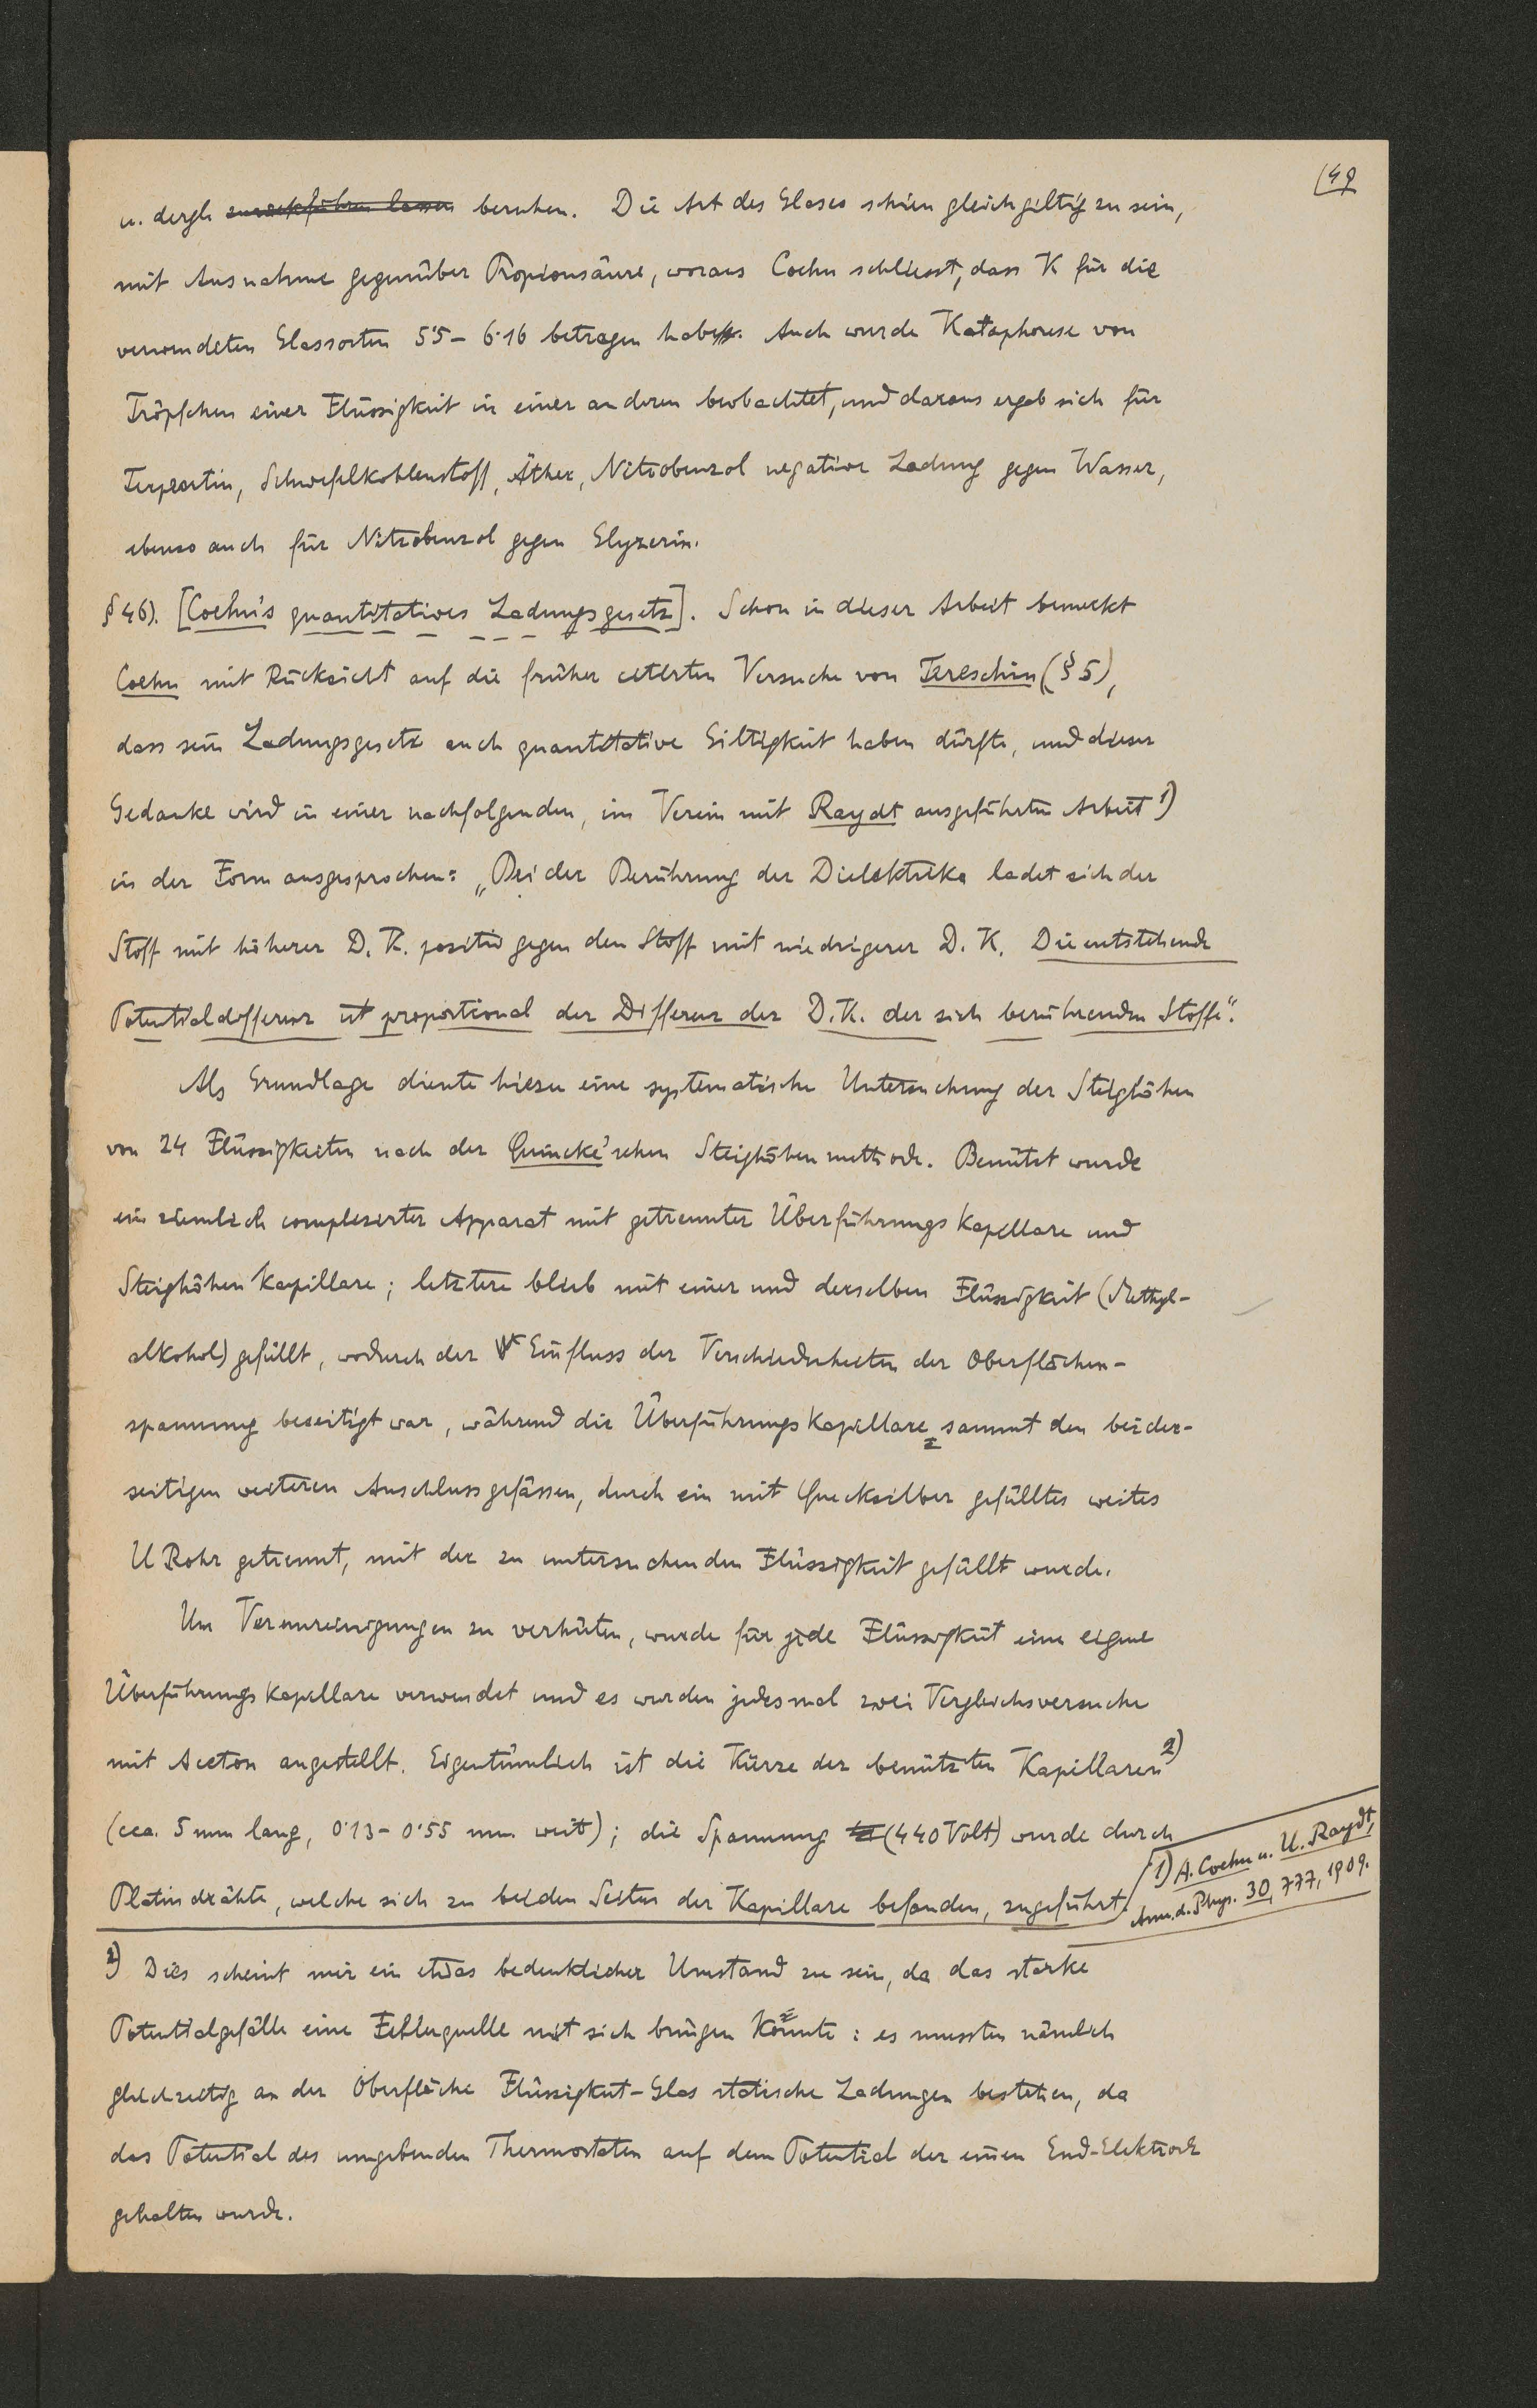 (49
u. dergl. zurückführen lassen beruhen. Die Art des Glases schien gleichgiltig zu sein,
mit Ausnahme gegenüber Propionsäure, woraus Coehn schliesst, dass K für die
verwendeten Glassorten 5·5 – 6·16 betragen habe. Auch wurde Kataphorese von
Tröpfchen einer Flüssigkeit in einer anderen beobachtet, und daraus ergab sich für
Terpentin, Schwefelkohlenstoff, Äther, Nitrobenzol negative Ladung gegen Wasser,
ebenso auch für Nitrobenzol gegen Glyzerin.
§ 46). [Coehn's quantitatives Ladungsgesetz]. Schon in dieser Arbeit bemerkt
Coehn mit Rücksicht auf die früher citierten Versuche von Tereschin (§ 5),
dass sein Ladungsgesetz auch quantitative Giltigkeit haben dürfte, und dieser
Gedanke wird in einer nachfolgenden, im Verein mit Raydt ausgeführten Arbeit 1)
in der Form ausgesprochen: „Bei der Berührung der Dielektrika ladet sich der
Stoff mit höherer D. K. positiv gegen den Stoff mit niedrigerer D. K. Die entstehende
Potentialdifferenz ist proportional der Differenz der D. K. der sich berührenden Stoffe“.
Als Grundlage diente hiezu eine systematische Untersuchung der Steighöhen
von 24 Flüssigkeiten nach der Quincke'schen Steighöhenmethode. Benützt wurde
ein ziemlich complizierter Apparat mit getrennter Überführungskapillare und
Steighöhenkapillare; letztere blieb mit einer und derselben Flüssigkeit (Methyl-
alkohol) gefüllt, wodurch der Einfluss der Verschiedenheiten der Oberflächen-
spannung beseitigt war, während die Überführungskapillare, sammt den beider-
seitigen weiteren Anschlussgefässen, durch ein mit Quecksilber gefülltes weites
U Rohr getrennt, mit der zu untersuchenden Flüssigkeit gefüllt wurde.
Um Verunreinigungen zu verhüten, wurde für jede Flüssigkeit eine eigene
Überführungskapillare verwendet und es wurden jedesmal zwei Vergleichsversuche
mit Aceton angestellt. Eigentümlich ist die Kürze der benützten Kapillaren 2)
(cca. 5 mm lang, 0·13 – 0·55 mm weit); die Spannung (440 Volt) wurde durch
Platindrähte, welche sich zu beiden Seiten der Kapillare befanden, zugeführt.
1) A. Coehn u. U. Raydt,
Ann. d. Phys. 30, 777, 1909.
2) Dies scheint mir ein etwas bedenklicher Umstand zu sein, da das starke
Potentialgefälle eine Fehlerquelle mit sich bringen könnte: es mussten nämlich
gleichzeitig an der Oberfläche Flüssigkeit-Glas statische Ladungen bestehen, da
das Potential des umgebenden Thermostaten auf dem Potential der einen End-Elektrode
gehalten wurde.